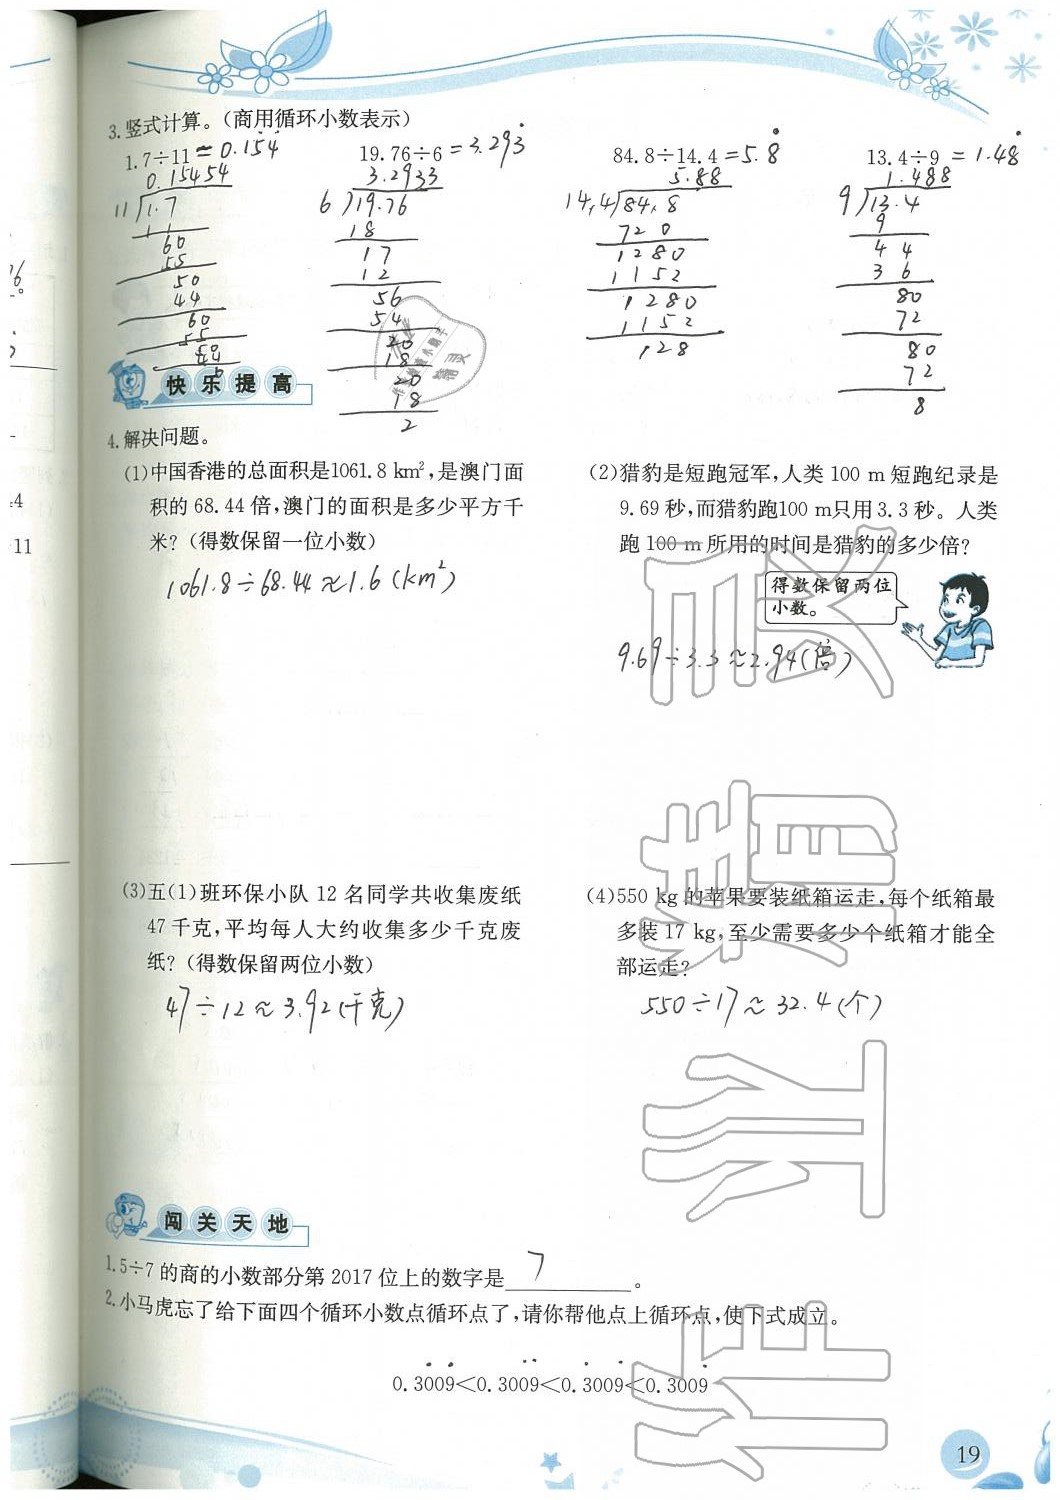 3.竖式计算。(商用循环小数表示)
1.7÷11=0.15̇4̇
19.76÷6=3.293̇
84.8÷14.4=5.8̇
13.4÷9=1.48̇
0.15454
11)1.7
11
60
55
50
44
60
55
50
44
3.2933
6)19.76
18
17
12
56
54
20
18
20
18
2
5.88
14.4)84.8
720
1280
1152
1280
1152
128
1.488
9)13.4
9
44
36
80
72
80
72
8
快乐提高
4.解决问题。
(1)中国香港的总面积是1061.8 km²,是澳门面
积的 68.44 倍,澳门的面积是多少平方千
米?(得数保留一位小数)
1061.8÷68.44≈1.6(km²)
(2)猎豹是短跑冠军,人类 100 m 短跑纪录是
9.69 秒,而猎豹跑100 m只用 3.3 秒。人类
跑 100 m 所用的时间是猎豹的多少倍?
得数保留两位
小数。
9.69÷3.3≈2.94(倍)
(3)五(1)班环保小队 12 名同学共收集废纸
47 千克,平均每人大约收集多少千克废
纸?(得数保留两位小数)
47÷12≈3.92(千克)
(4)550 kg 的苹果要装纸箱运走,每个纸箱最
多装 17 kg,至少需要多少个纸箱才能全
部运走?
550÷17≈32.4(个)
闯关天地
1.5÷7 的商的小数部分第 2017 位上的数字是 7 。
2.小马虎忘了给下面四个循环小数点循环点了,请你帮他点上循环点,使下式成立。
0.3009<0.3009<0.3009<0.3009
19